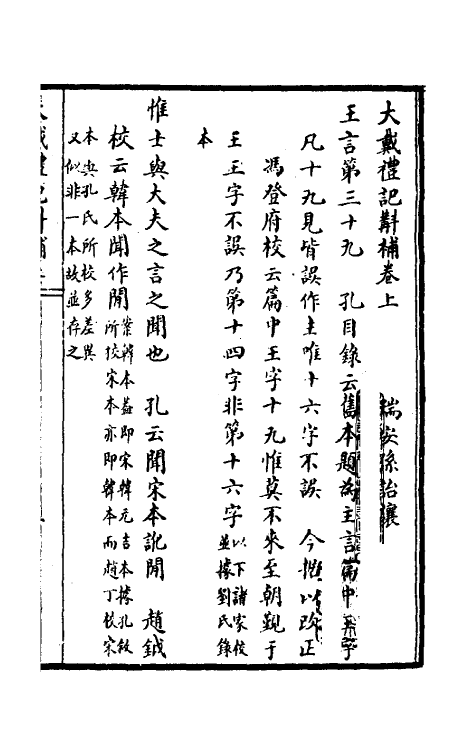 大戴禮記斠補卷上　瑞安孫詒讓
王言第三十九　孔目錄云舊本題為主言篇中王字
凡十九見皆誤作主唯十六字不誤　今據以改正
馮登府校云篇中王字十九惟莫不來至朝覲于
王王字不誤乃第十四字非第十六字以下諸家校並據劉氏錄
本
惟士與大夫之言之聞也　孔云聞宋本訛閒　趙鉞
校云韓本聞作閒案韓本葢即宋韓元吉本據孔敘所校宋本亦即韓本而趙丁校宋
本與孔氏所校多差異又似非一本故並存之
大戴禮記斠補上